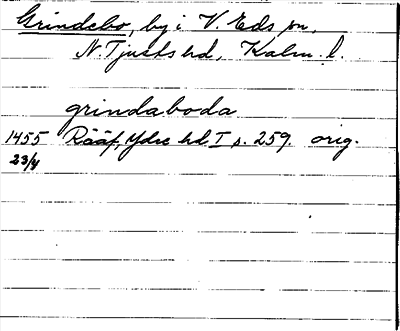 Grindebo, by i V. Eds sn,
N. Tjusts hd, Kalm. l.
grindaboda
1455 Rääf, Ydre hd I s. 259. orig.
23/4